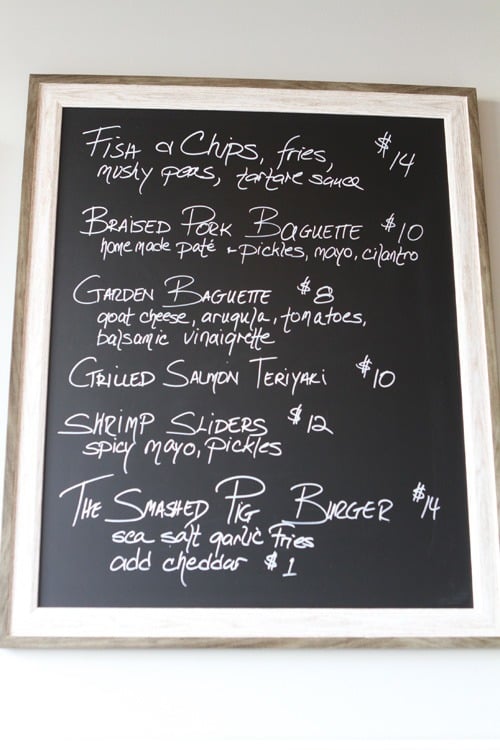 Fish & Chips, fries, $14
mushy peas, tartare sauce
Braised Pork Baguette $10
homemade paté + pickles, mayo, cilantro
Garden Baguette $8
goat cheese, arugula, tomatoes,
balsamic vinaigrette
Grilled Salmon Teriyaki $10
Shrimp Sliders $12
spicy mayo, pickles
The Smashed Pig Burger $14
sea salt garlic fries
add cheddar $1